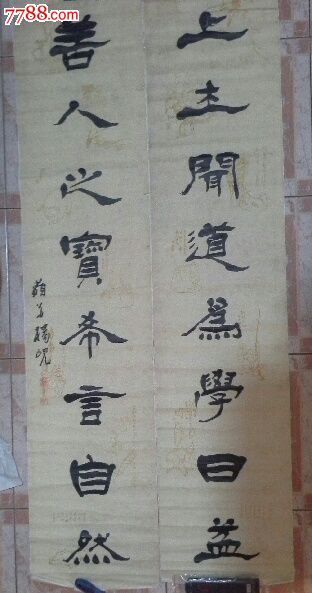 7788.com
上士聞道為學日益
善人之寶希言自然